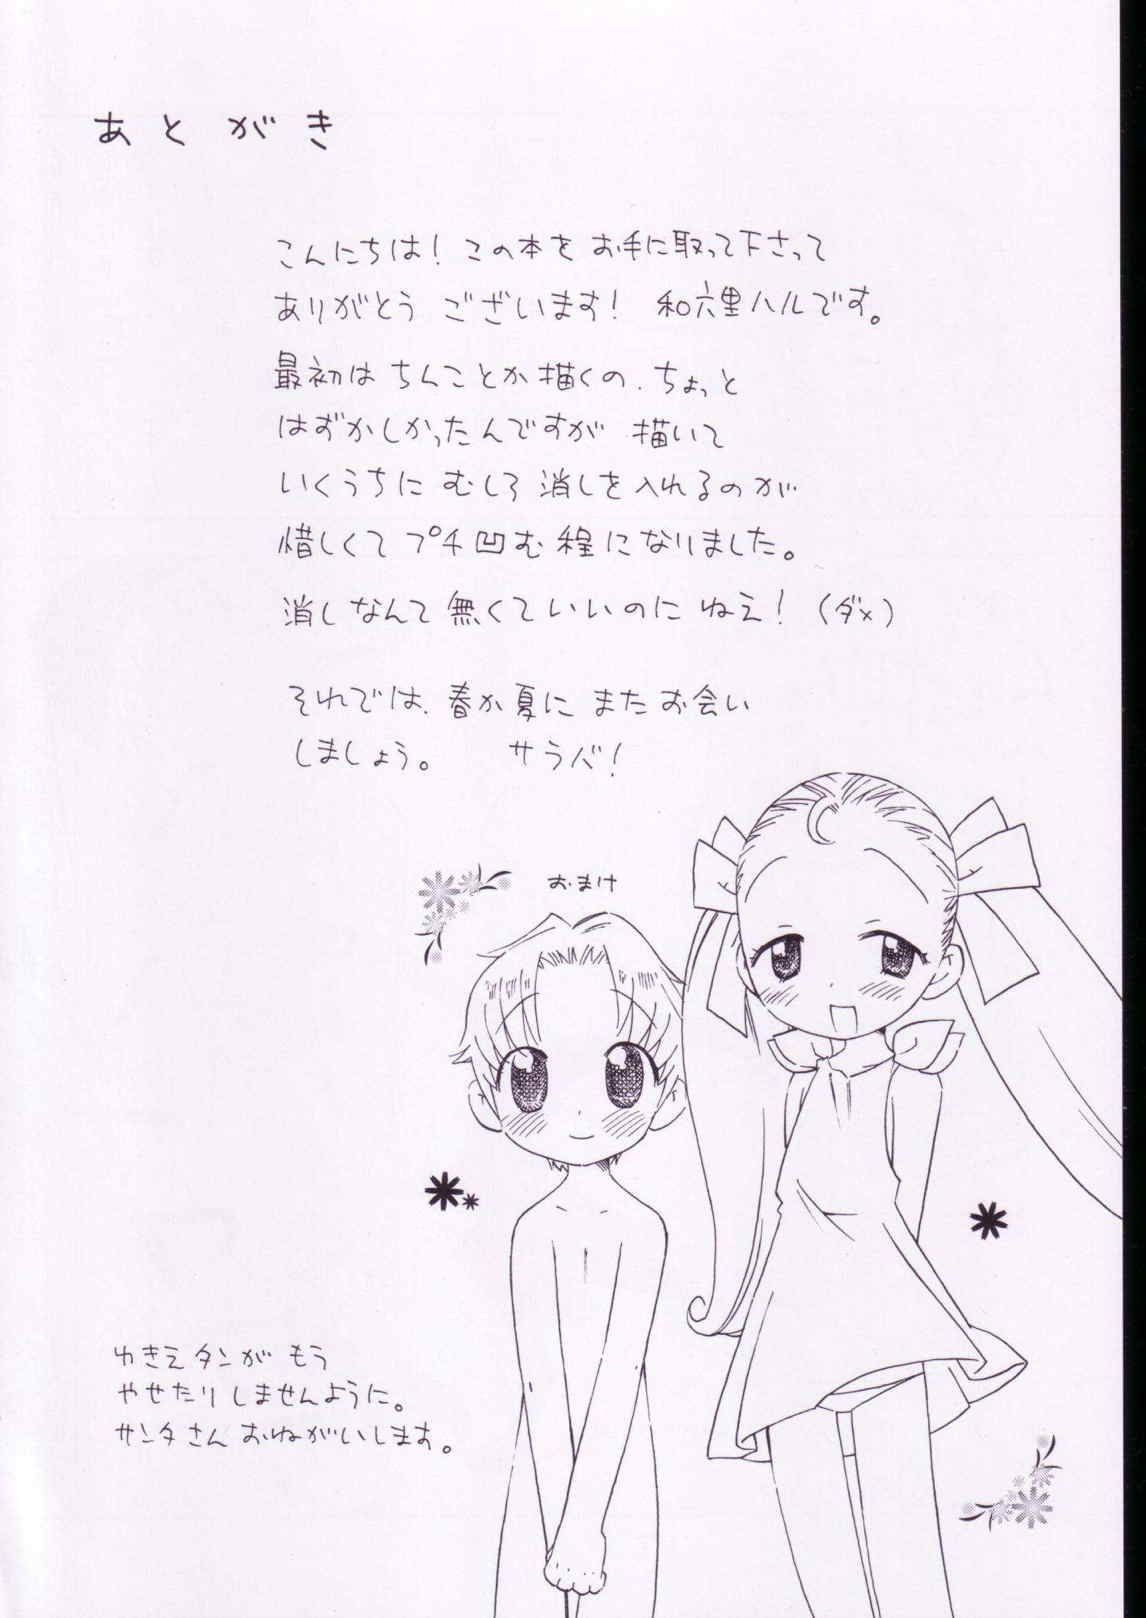 あとがき
こんにちは! この本を お手に取って下さって
ありがとう ございます! 和六里ハルです。
最初は ちんことか描くの、ちょっと
はずかしかったんですが 描いて
いくうちに むしろ 消しを入れるのが
惜しくて プチ凹む程になりました。
消しなんて 無くていいのに ねえ! (ダメ)
それでは、春か夏に またお会い
しましょう。 サラバ!
おまけ
ゆきえタンが もう
やせたりしませんように。
サンタさん おねがいします。